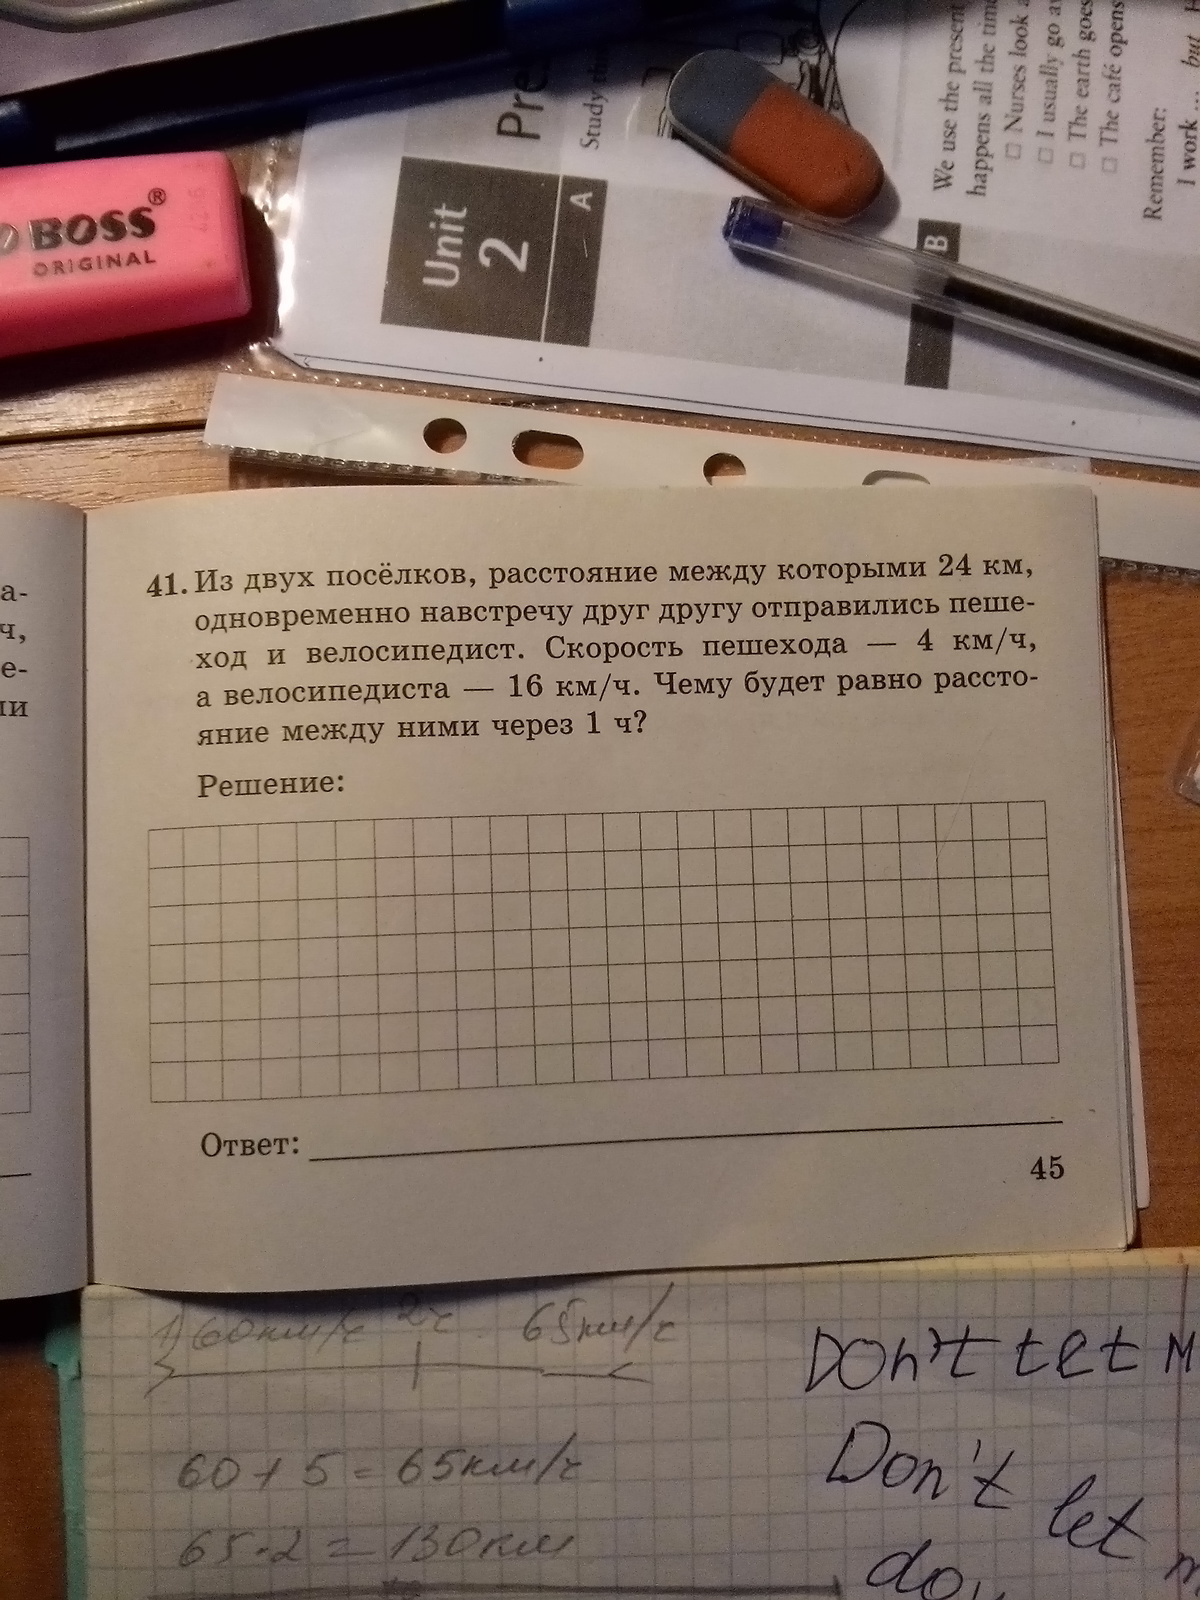 BOSS
®
ORIGINAL
4216
Unit
2
Pre
Study thi
A
B
We use the present
happens all the time
□ Nurses look a
□ I usually go aw
□ The earth goes
□ The café opens
Remember:
I work ... but H
а-
ч,
е-
ли
41. Из двух посёлков, расстояние между которыми 24 км,
одновременно навстречу друг другу отправились пеше-
ход и велосипедист. Скорость пешехода — 4 км/ч,
а велосипедиста — 16 км/ч. Чему будет равно рассто-
яние между ними через 1 ч?
Решение:
Ответ:
45
1) 60км/ч 2ч 65км/ч
60 + 5 = 65км/ч
65·2 = 130км
Don't let m
Don't let m
do